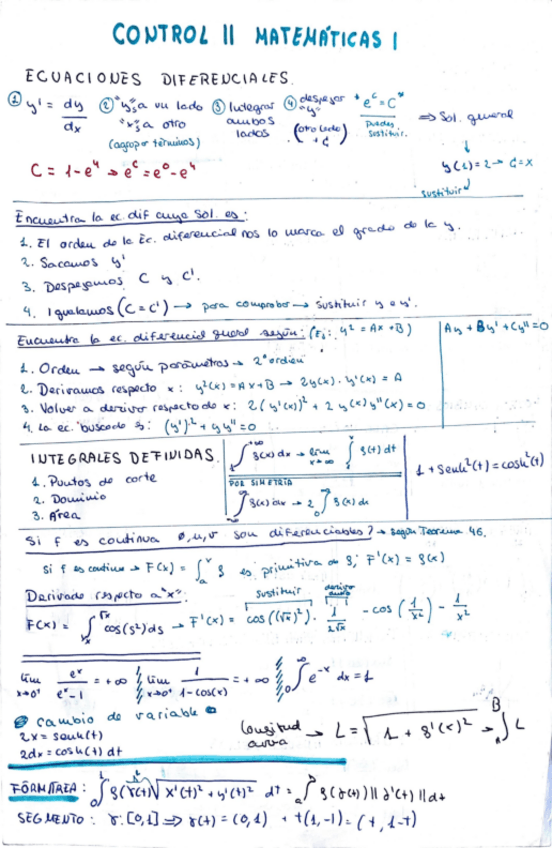 CONTROL II MATEMÁTICAS I
ECUACIONES DIFERENCIALES.
① y' = dy/dx ② "y" a un lado "x" a otro (agrupar términos) ③ Integrar ambos lados ④ despejar "y" (otro lado + C) * e^c = C * Puedes sustituir. ⇒ Sol. general
C = 1-e⁴ → e^c = e⁰-e⁴
y(1)=2 → C=x
sustituir
Encuentra la ec. dif cuya sol. es:
1. El orden de la Ec. diferencial nos lo marca el grado de la y.
2. Sacamos y'
3. Despejamos C y C'.
4. Igualamos (C = C') → para comprobar → sustituir y e y'.
Encuentra la ec. diferencial gneral según: (Ej: y² = Ax + B) Ay + By' + Cy'' = 0
1. Orden → según parámetros → 2º orden
2. Derivamos respecto x: y²(x) = Ax+B → 2y(x) · y'(x) = A
3. Volver a derivar respecto de x: 2(y'(x))² + 2y(x)y''(x) = 0
4. La ec. buscada es: (y')² + yy'' = 0
INTEGRALES DEFINIDAS.
1. Puntos de corte
2. Dominio
3. Área
POR SIMETRÍA
1 + senh²(t) = cosh²(t)
Si f es continua ∅, u, v son diferenciables? → según Teorema 46.
si f es continua → F(x) = ∫ₐˣ f es primitiva de f; F'(x) = f(x)
Derivada respecto a "x":
sustituir
F(x) = ∫ₓ^√x cos(s²)ds → F'(x) = cos((√x)²) · 1/2√x - cos(1/x²) - 1/x²
lim x→0⁺ eˣ/eˣ-1 = +∞ lim x→0⁺ 1/1-cos(x) = +∞ ∫₀^∞ e⁻ˣ dx = 1
cambio de variable
2x = senh(t)
2dx = cosh(t) dt
Longitud curva → L = √1 + f'(x)² → ∫ₐᴮ L
∫ₐᵇ f(γ(t)) √x'(t)² + y'(t)² dt = ∫ₐᵇ f(γ(t)) ||γ'(t)|| dt
SEGMENTO: γ: [0,1] ⇒ γ(t) = (0,1) + t(1,-1) = (t, 1-t)